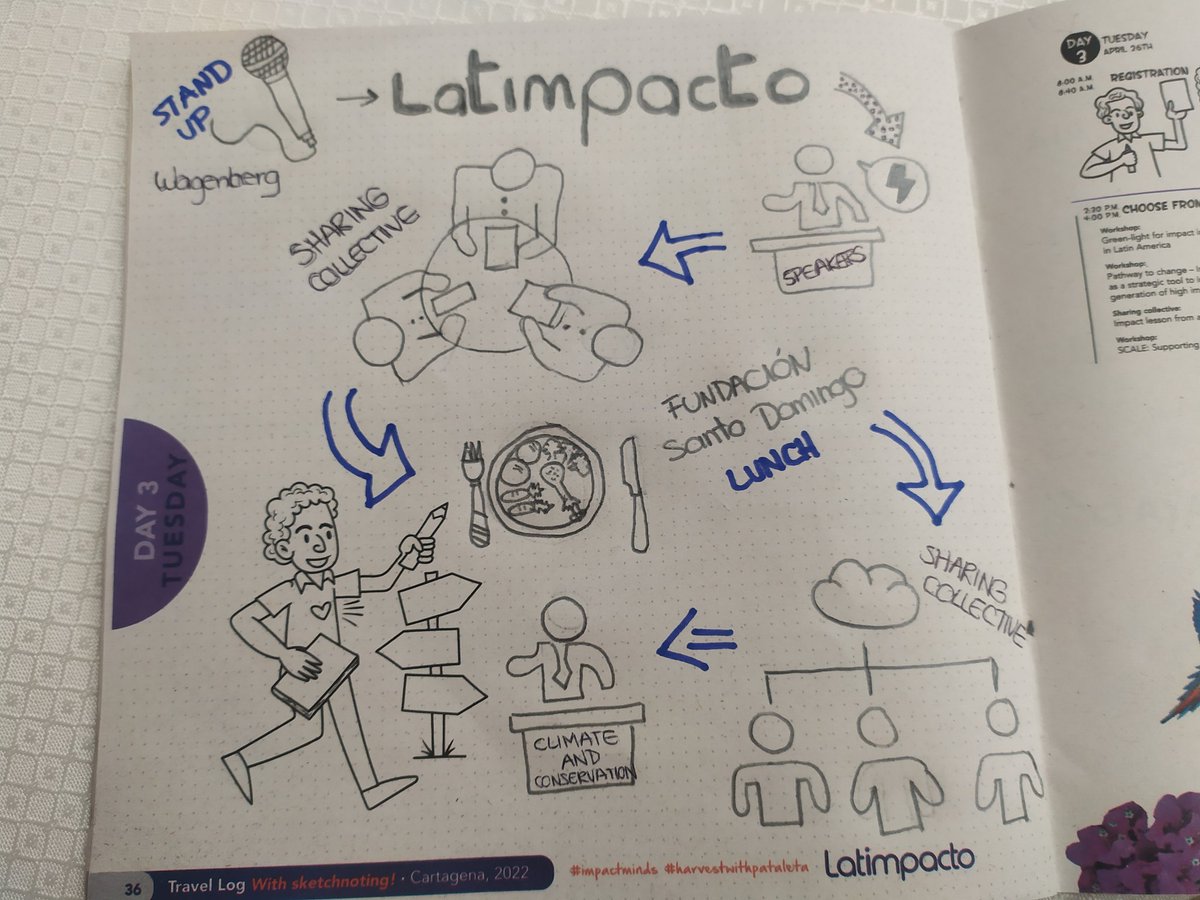 STAND
UP
Wagenberg
Latimpacto
SPEAKERS
SHARING
COLLECTIVE
FUNDACIÓN
Santo Domingo
LUNCH
SHARING
COLLECTIVE
CLIMATE
AND
CONSERVATION
DAY 3
TUESDAY
36 Travel Log With sketchnoting! · Cartagena, 2022
#impactminds #harvestwithpataleta
Latimpacto
DAY
3
TUESDAY
APRIL 26TH
8:00 A.M.
8:40 A.M.
REGISTRATION
2:30 P.M.
4:00 P.M.
CHOOSE FROM
Workshop:
Green-light for impact
in Latin America
Workshop:
Pathway to change –
as a strategic tool to
generation of high
Sharing collective:
Impact lesson from
Workshop:
SCALE: Supporting